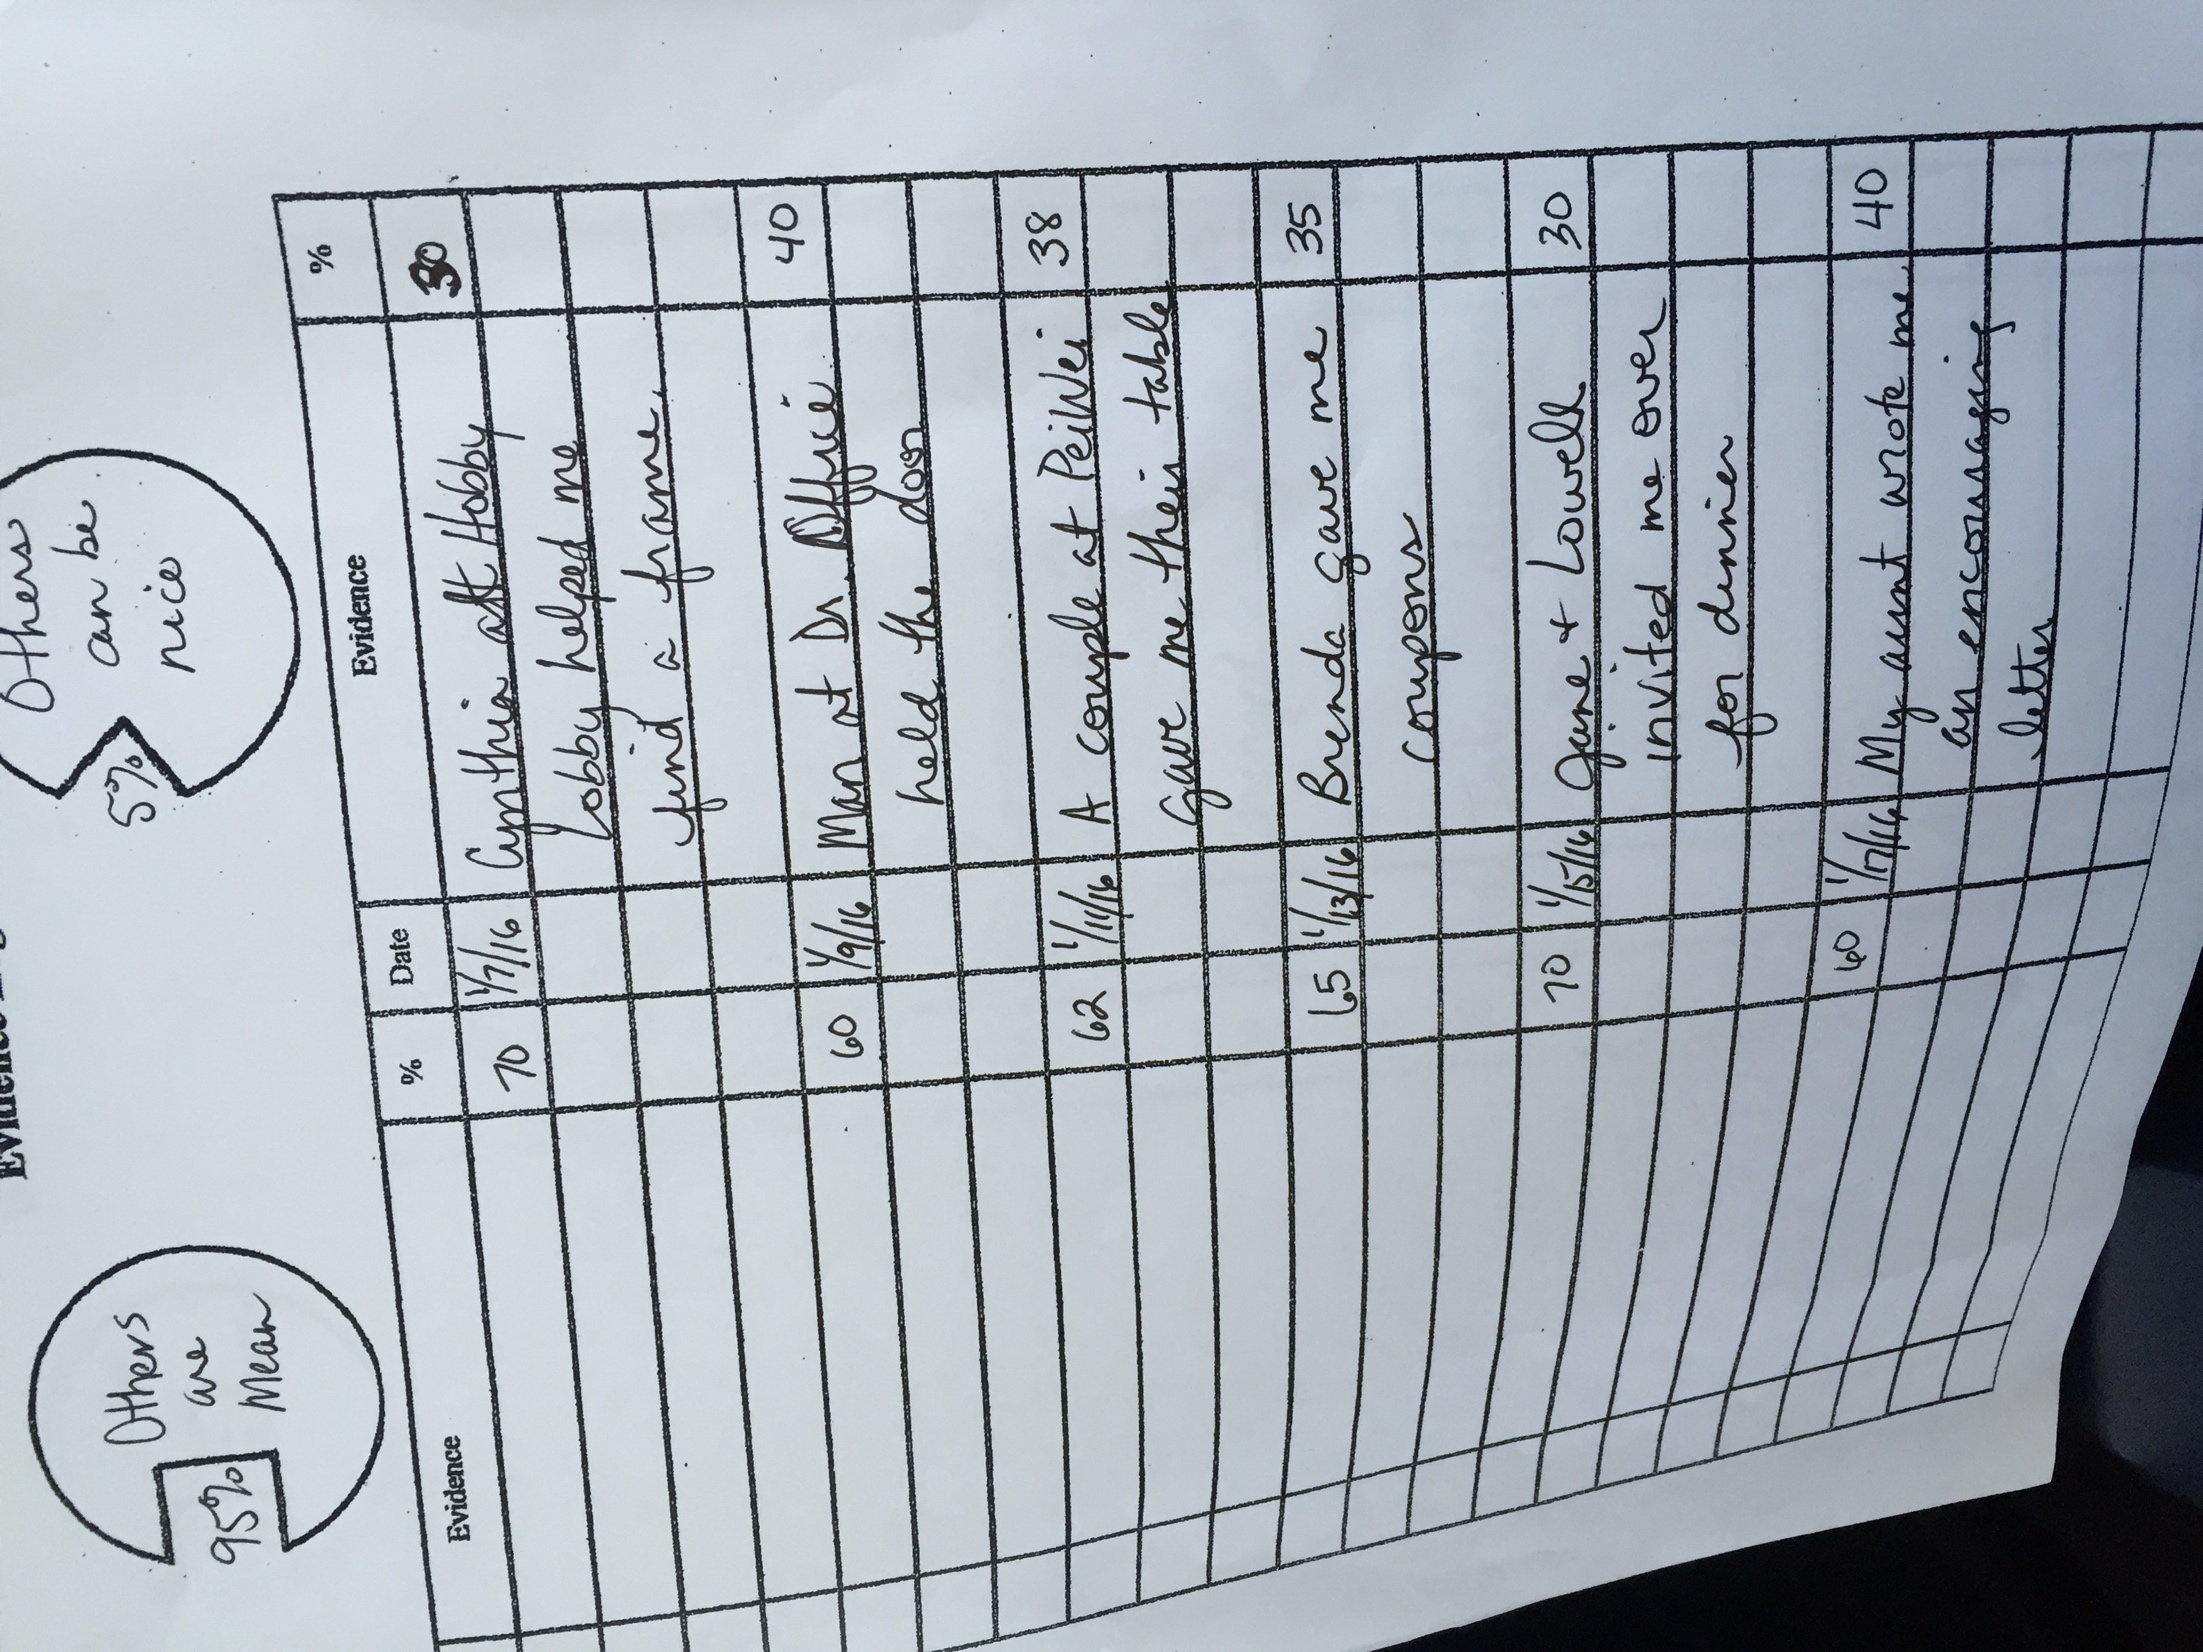 Evidence
Others
are
Mean
95%
Others
can be
nice
5%
Evidence % Date Evidence %
70 1/7/16 Cynthia at Hobby 30
Lobby helped me
find a frame.
60 1/9/16 Man at Dr. Office 40
held the door
62 1/11/16 A couple at PeiWei 38
gave me their table
65 1/13/16 Brenda gave me 35
coupons
70 1/15/16 Jane + Lowell 30
invited me over
for dinner
60 1/17/16 My aunt wrote me 40
an encouraging
letter